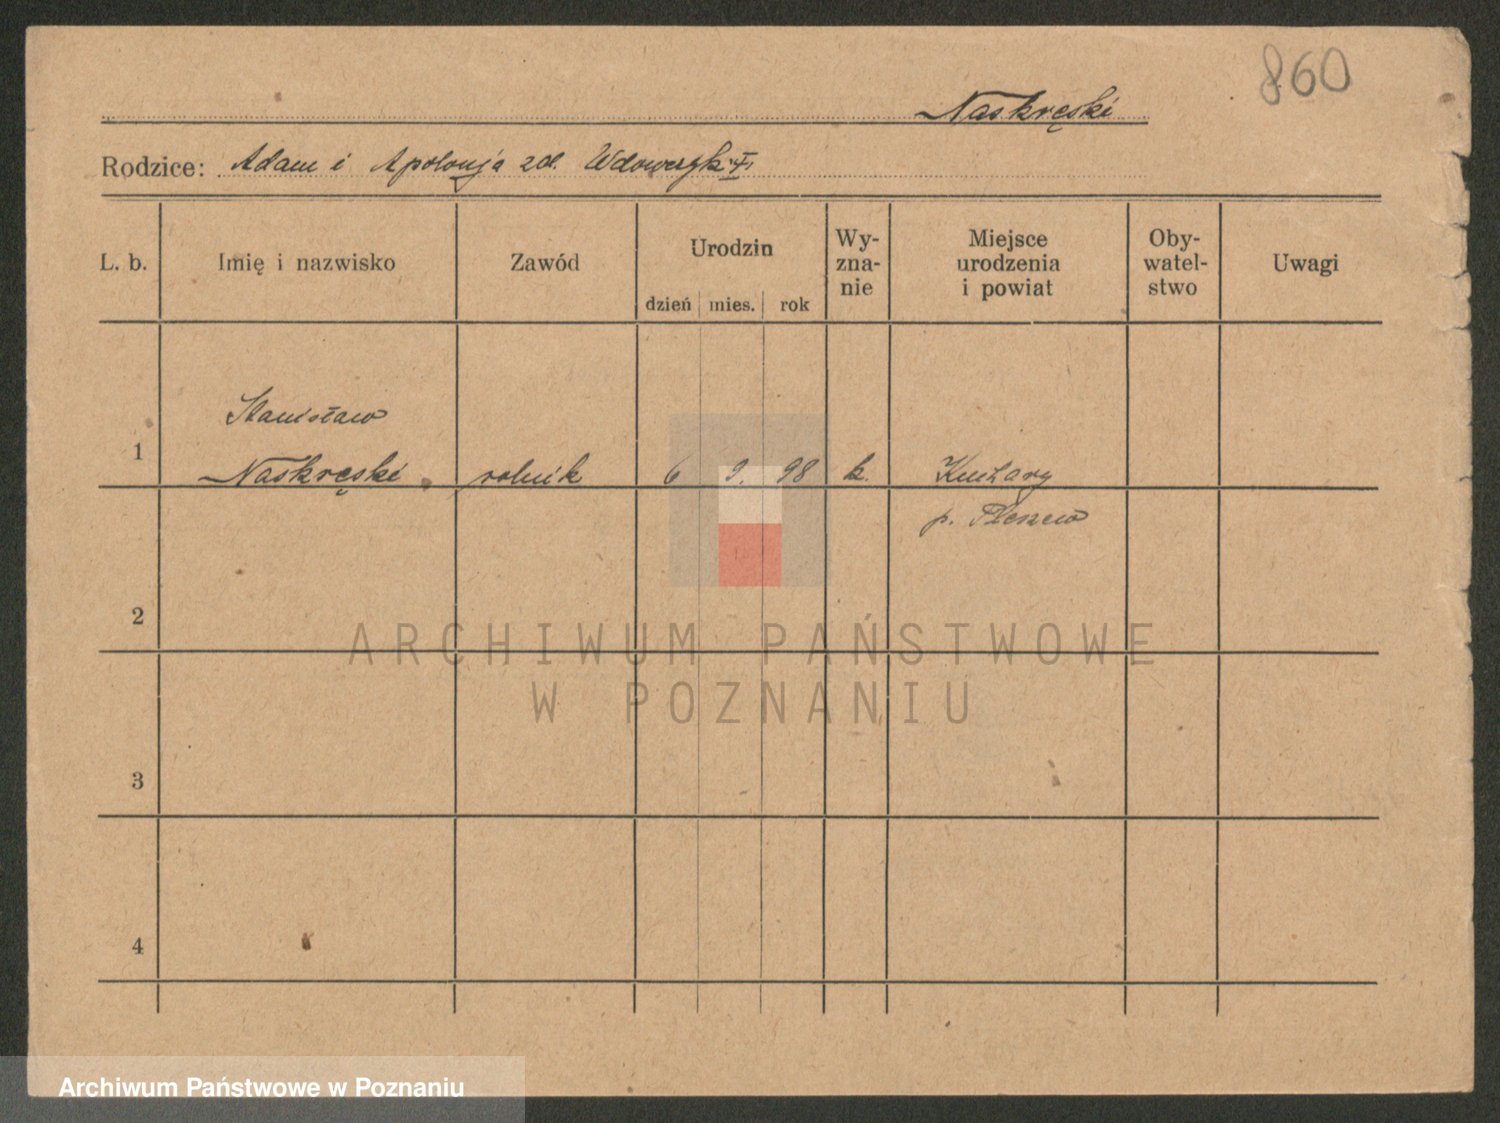 860
Naskręski
Rodzice: Adam i Apolonja zd. Wdowczyk
L. b. Imię i nazwisko Zawód Urodzin dzień mies. rok Wy-zna-nie Miejsce urodzenia i powiat Oby-watel-stwo Uwagi
Stanisław
1 Naskręski rolnik 6 9. 98 k. Kuchary
p. Pleszew
2
ARCHIWUM PAŃSTWOWE
W POZNANIU
3
4
Archiwum Państwowe w Poznaniu